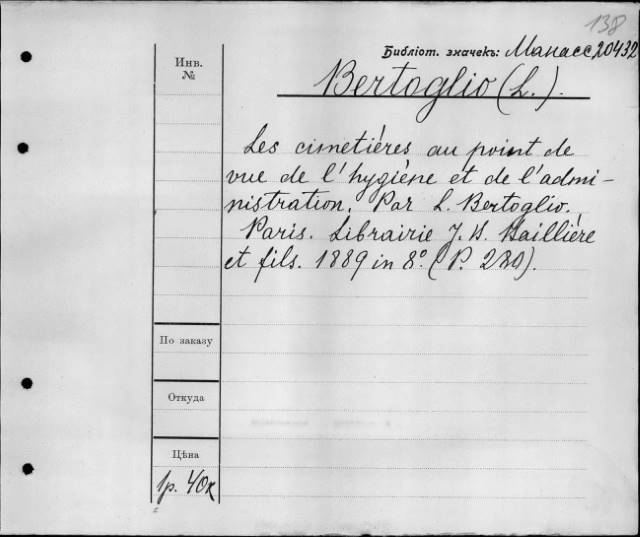 138
Библіот. значекъ: Манасс 20432
Инв.
№
Bertoglio (L.).
Les cimetiéres au point de
vue de l'hygiéne et de l'admi-
nistration. Par L. Bertoglio.
Paris. Librairie J. B. Bailliére
et fils. 1889 in 8º. (P. 280).
По заказу
Откуда
Цѣна
1р. 40к